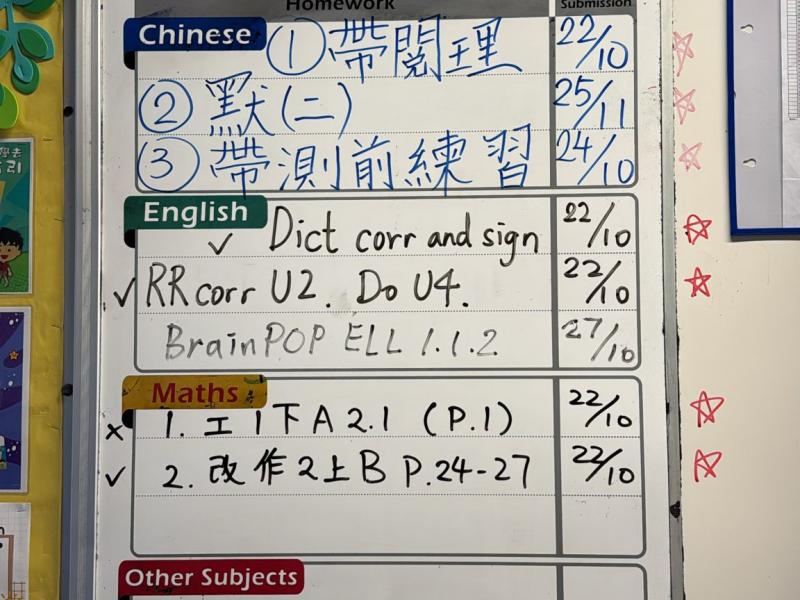 Homework
Submission
Chinese
① 帶閱理 22/10
② 默(二) 25/11
③ 帶測前練習 24/10
English
✓ Dict corr and sign 22/10
✓ RR corr U2. Do U4. 22/10
BrainPOP ELL 1.1.2 27/10
Maths
× 1. 工1下A 2.1 (P.1) 22/10
✓ 2. 改作2上B P.24-27 22/10
Other Subjects